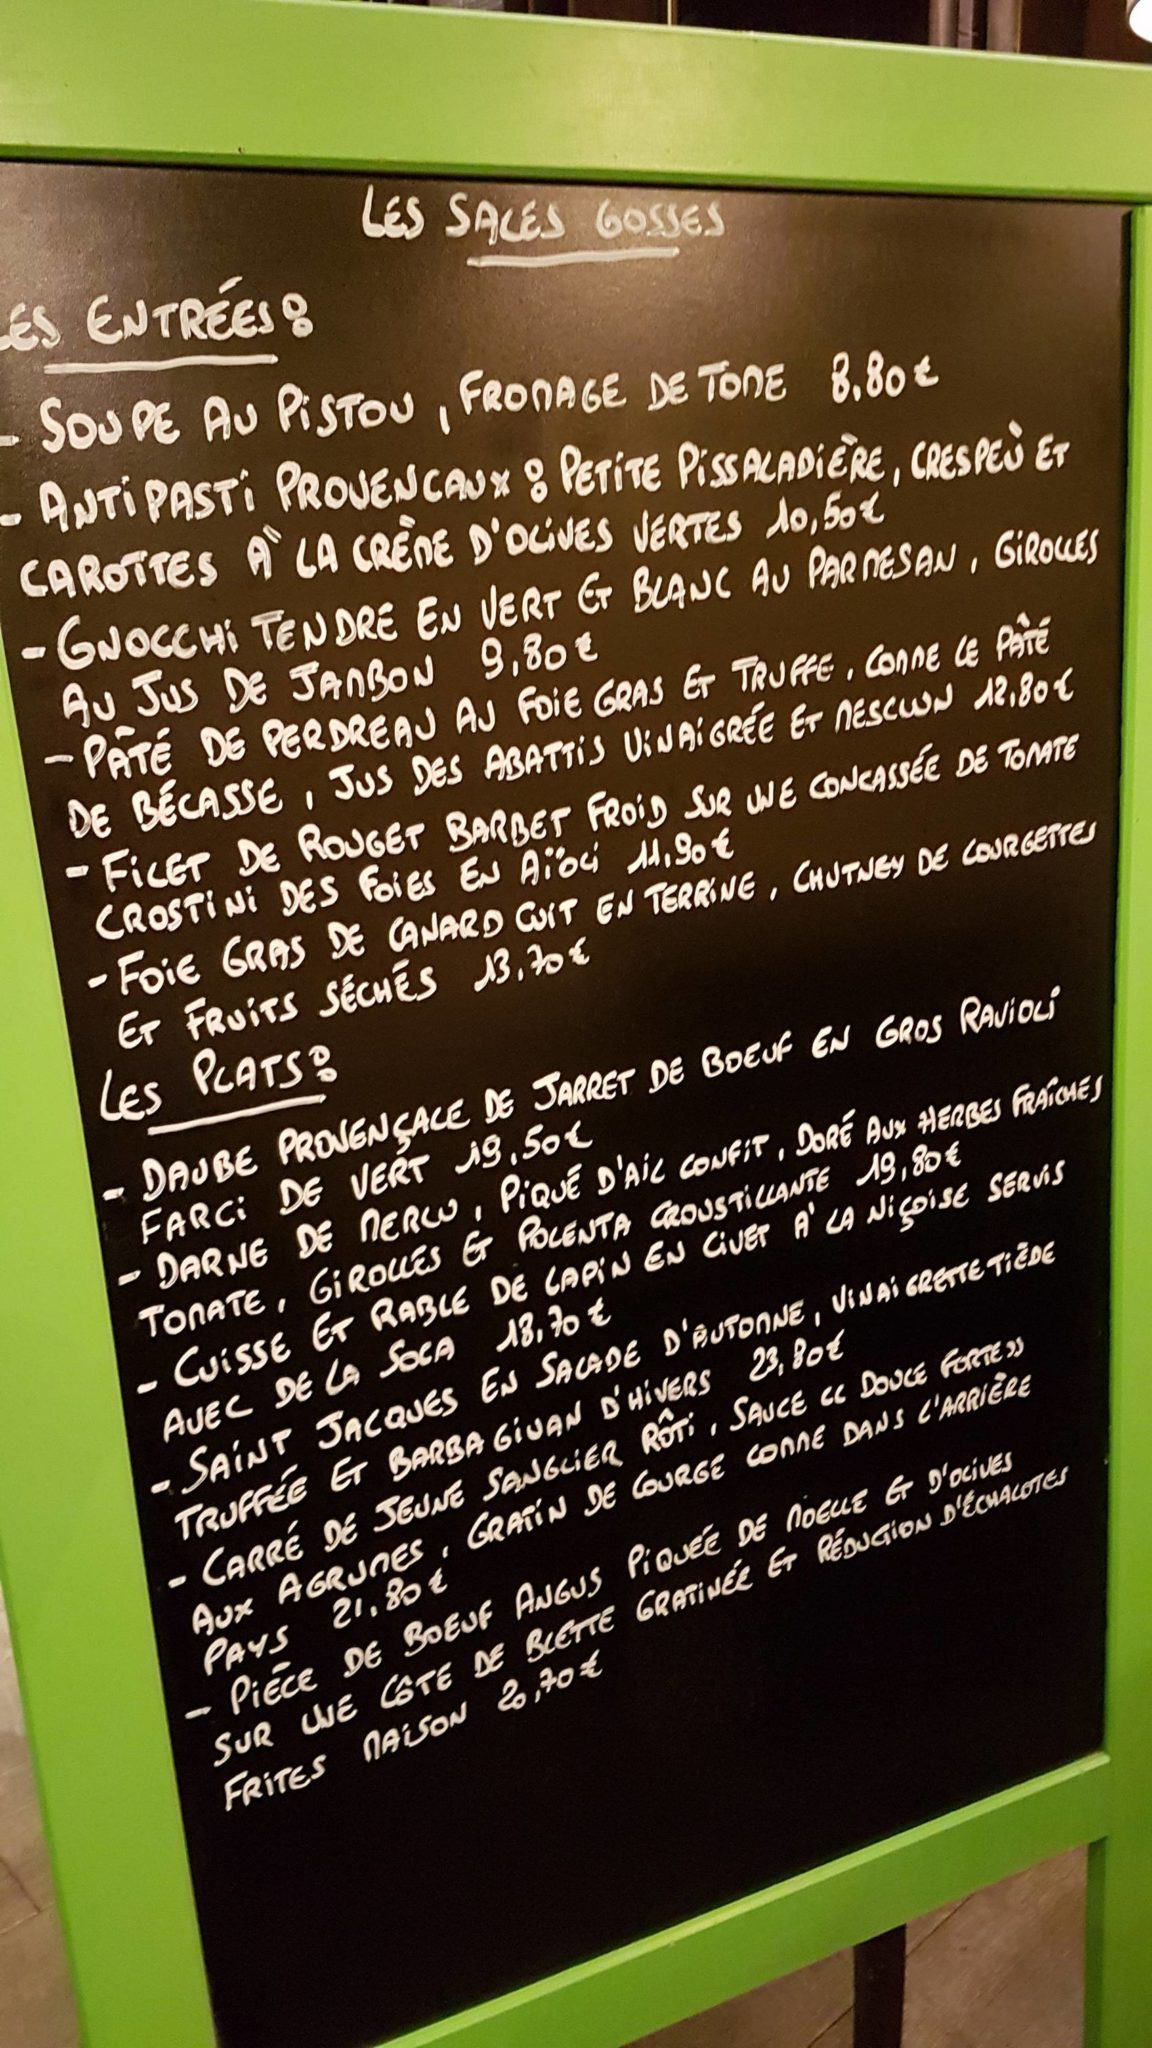 LES SALES GOSSES
LES ENTRÉES:
- SOUPE AU PISTOU, FROMAGE DE TOME 8.80€
- ANTIPASTI PROVENCAUX: PETITE PISSALADIÈRE, CRESPEÙ ET
CAROTTES À LA CRÈME D'OLIVES VERTES 10,50€
- GNOCCHI TENDRE EN VERT ET BLANC AU PARMESAN, GIROLLES
AU JUS DE JAMBON 9,80€
- PÂTÉ DE PERDREAU AU FOIE GRAS ET TRUFFE, COMME LE PÂTÉ
DE BÉCASSE, JUS DES ABATTIS VINAIGRÉE ET MESCLUN 12,80€
- FILET DE ROUGET BARBET FROID SUR UNE CONCASSÉE DE TOMATE
CROSTINI DES FOIES EN AÏOLI 11,90€
- FOIE GRAS DE CANARD CUIT EN TERRINE, CHUTNEY DE COURGETTES
ET FRUITS SÉCHÉS 13,70€
LES PLATS:
- DAUBE PROVENÇALE DE JARRET DE BOEUF EN GROS RAVIOLI
FARCI DE VERT 19,50€
- DARNE DE MERLU, PIQUÉ D'AIL CONFIT, DORÉ AUX HERBES FRAÎCHES
TOMATE, GIROLLES ET POLENTA CROUSTILLANTE 19,80€
- CUISSE ET RABLE DE LAPIN EN CIVET À LA NIÇOISE SERVIS
AVEC DE LA SOCA 18,70€
- SAINT JACQUES EN SALADE D'AUTOMNE, VINAIGRETTE TIÈDE
TRUFFÉE ET BARBAGIUAN D'HIVERS 23,80€
- CARRÉ DE JEUNE SANGLIER RÔTI, SAUCE "DOUCE FORTE"
AUX AGRUMES, GRATIN DE COURGE COMME DANS L'ARRIÈRE
PAYS 21.80€
- PIÈCE DE BOEUF ANGUS PIQUÉE DE MOELLE ET D'OLIVES
SUR UNE CÔTE DE BLETTE GRATINÉE ET RÉDUCTION D'ÉCHALOTES
FRITES MAISON 20,70€